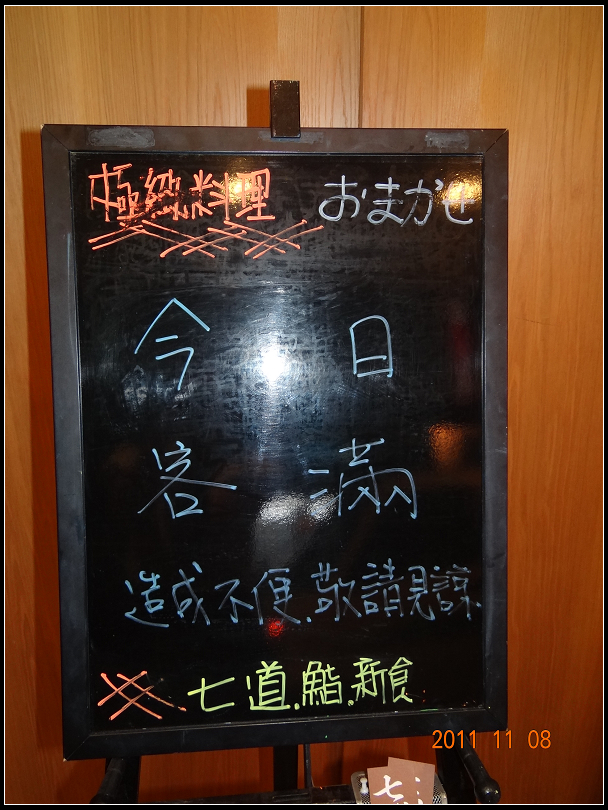 極緻料理 おまかせ
今日
客滿
造成不便.敬請見諒.
※ 七道.鮨.新食
2011 11 08
七